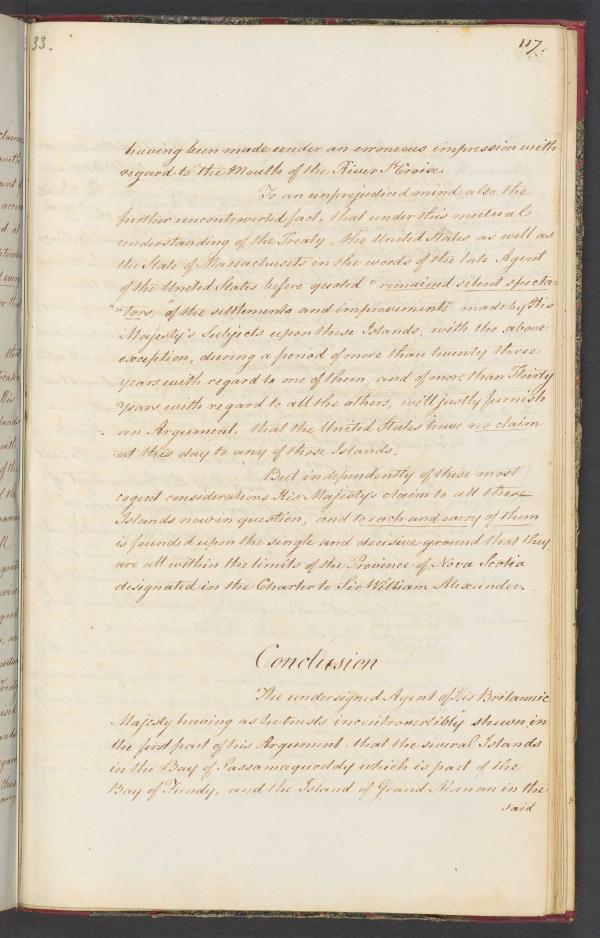 33.
117.
having been made under an erroneous impression with
regard to the Mouth of the River St Croix.
To an unprejudiced mind also the
further uncontroverted fact, that under this mutual
understanding of the Treaty, the United States as well as
the State of Massachusets in the words of the late Agent
of the United States before quoted "remained silent specta=
"=tors," of the settlements and improvements made by His
Majesty's Subjects upon these Islands, with the above
exception, during a period of more than twenty three
years with regard to one of them, and of more than Thirty
Years with regard to all the others, will justly furnish
an Argument, that the United States have no claim
at this day to any of those Islands.
But independently of these most
cogent considerations His Majesty's claim to all these
Islands now in question, and to each and every of them
is founded upon the single and decisive ground that they
are all within the limits of the Province of Nova Scotia
designated in the Charter to Sir William Alexander.
Conclusion
The undersigned Agent of His Britannic
Majesty having as he trusts incontrovertibly shewn in
the first part of his Argument, that the several Islands
in the Bay of Passamaquoddy which is part of the
Bay of Fundy, and the Island of Grand Menan in the
said